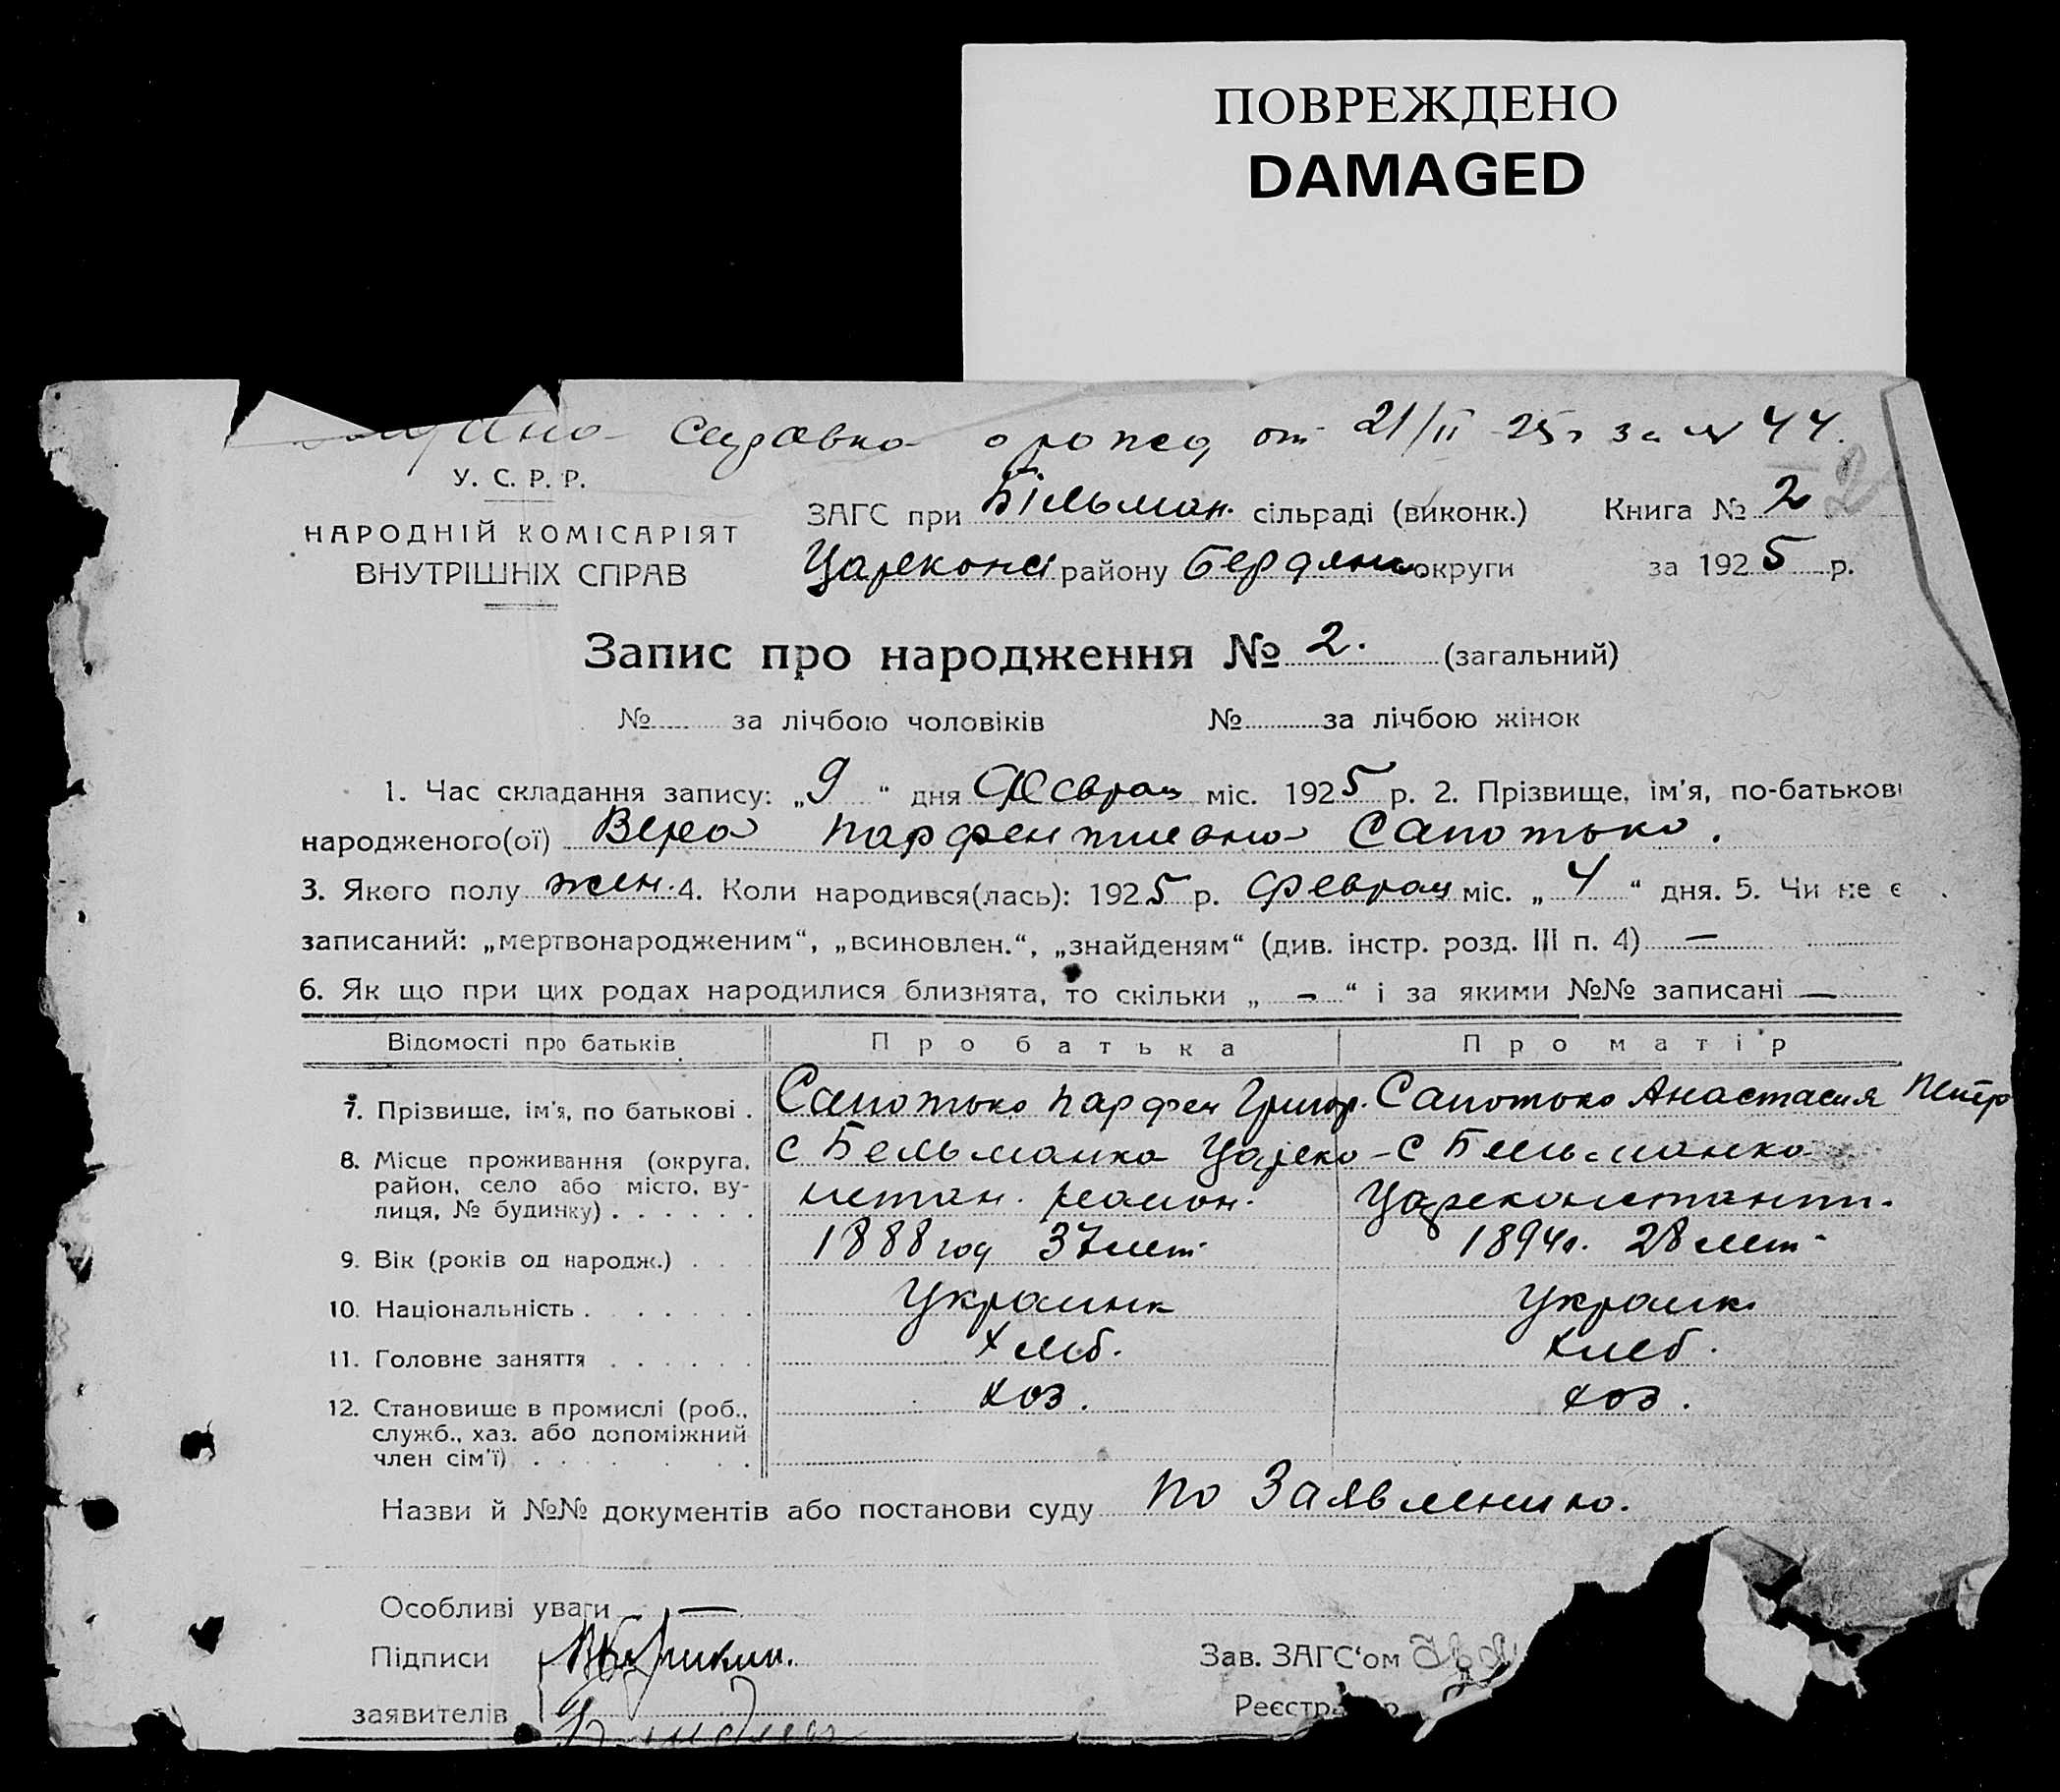 ПОВРЕЖДЕНО
DAMAGED
от 21/II 25 г за № 44.
У. С. Р. Р.
НАРОДНІЙ КОМІСАРІЯТ
ВНУТРІШНІХ СПРАВ
ЗАГС при Більман. сільраді (виконк.) Книга № 2
Цареконс району Бердянс округи за 1925 р.
Запис про народження № 2. (загальний)
№ за лічбою чоловіків № за лічбою жінок
1. Час складання запису: „9“ дня Феврал міс. 1925 р. 2. Прізвище, ім'я, по-батькові
народженого(ої) Вера Парфентиевна Сапотько.
3. Якого полу жен. 4. Коли народився(лась): 1925 р. Феврал міс. „4“ дня. 5. Чи не є
записаний: „мертвонародженим“, „всиновлен.“, „знайденям“ (див. інстр. розд. III п. 4) —
6. Як що при цих родах народилися близнята, то скільки „ – “ і за якими №№ записані —
Відомості про батьків Про батька Про матір
7. Прізвище, ім'я, по батькові . Сапотько Парфен Григор. Сапотько Анастасия Петро
8. Місце проживання (округа, с Бельманка Цареко- с Бельманка
район, село або місто, ву- нстан. район. Цареконстант.
лиця, № будинку) . . . . . .
9. Вік (років од народж.) . . . 1888 год 37 лет 1894 г. 28 лет
10. Національність . . . . . . Украинк Украинк
11. Головне заняття . . . . . . Хлеб. Хлеб.
12. Становище в промислі (роб., хоз. хоз.
служб., хаз. або допоміжний
член сім'ї) . . . . . . .
Назви й №№ документів або постанови суду По Заявлению.
Особливі уваги —
Підписи Зав. ЗАГС‘ом
заявителів